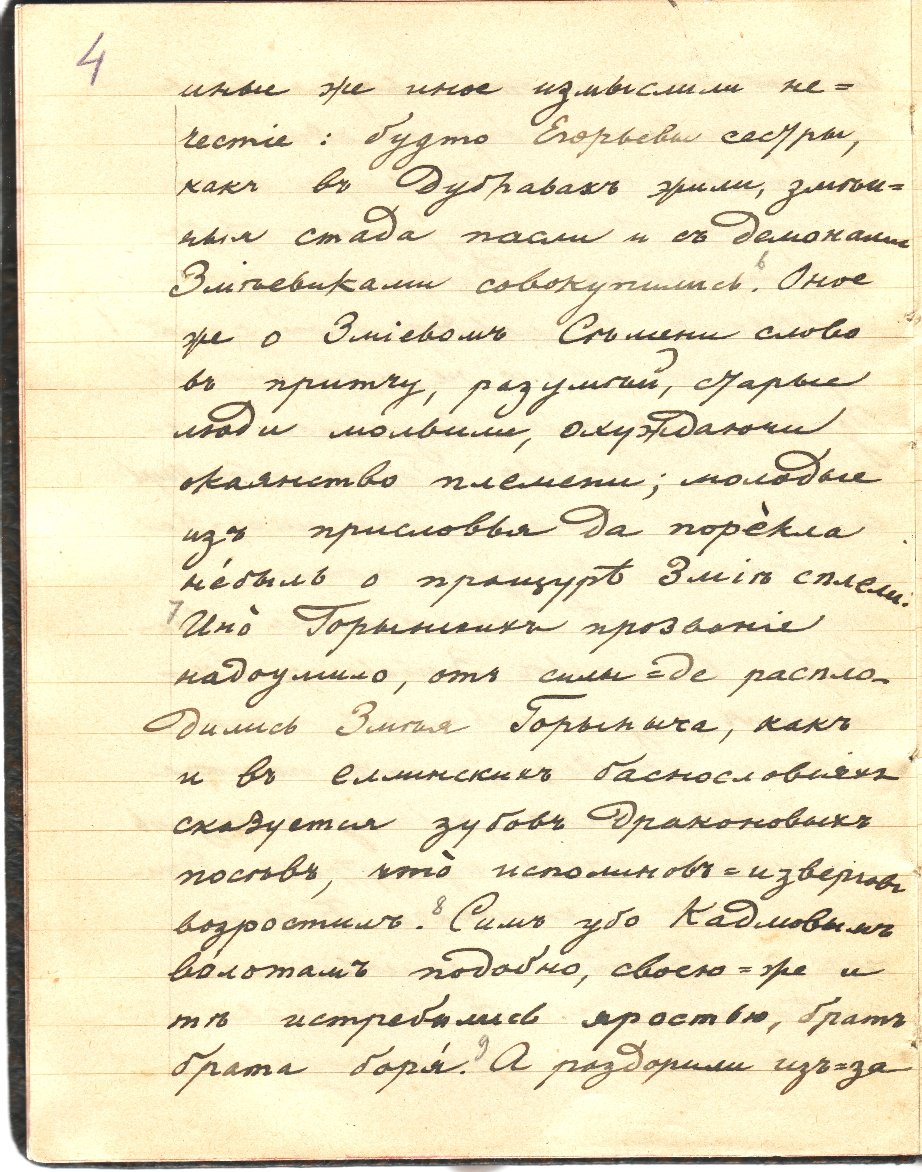 4
иные же иное измыслили не=
честіе: будто Егорьевы сестры,
какъ въ Дубравахъ жили, змѣи=
ныя стада пасли и съ демонами
Змѣевиками совокупились.⁶ Оное
же о Зміевомъ Сѣмени слово
въ притчу, разумѣй, старые
люди молвили, охуждаючи
окаянство племени; молодые
изъ присловья да порèкла
нéбыль о пращурѣ Зміѣ сплели.
7 Инò Горынскихъ прозваніе
надоумило, отъ силы=де распло-
дились Змѣя Горыныча, какъ
и въ еллинскихъ баснословіяхъ
сказуется зубовъ драконовыхъ
посѣвъ, чтò исполиновъ=изверговъ
возростилъ.⁸ Симъ убо Кадмовымъ
волотамъ подобно, своею=же и
тѣ истребились яростью, братъ
брата боря́.⁹ А раздорили изъ=за